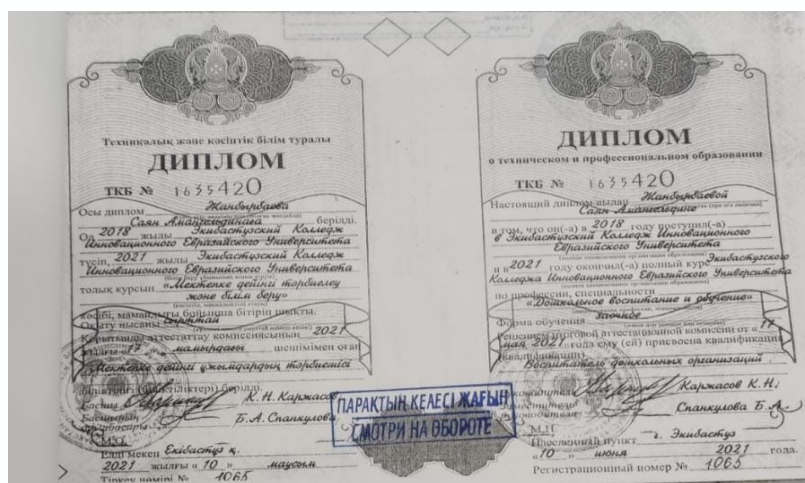 Техникалық және кәсіптік білім туралы
ДИПЛОМ
ТКБ № 1635420
Осы диплом Жанбырбаева
Саян Амангельдинаға берілді.
Ол 2018 жылы Экибастузский Колледж
Инновационного Евразийского Университета
түсіп, 2021 жылы Экибастузский Колледж
Инновационного Евразийского Университета
толық курсын «Мектепке дейінгі тәрбиелеу
және білім беру»
кәсібі, мамандығы бойынша бітіріп шықты.
Оқыту нысаны сырттай
Қорытынды аттестаттау комиссиясының 2021
жылғы «17» мамырдағы шешімімен оған
«Мектепке дейінгі ұжымдардың тәрбиешісі
біліктілігі (біліктіліктері) берілді.
К.Н.Каржасов
Б.А.Спанкулова
М.О.
Елді мекен Екібастұз қ.
2021 жылғы «10» маусым
Тіркеу нөмірі № 1065
ПАРАКТЫҢ КЕЛЕСІ ЖАҒЫН
СМОТРИ НА ОБОРОТЕ
ДИПЛОМ
о техническом и профессиональном образовании
ТКБ № 1635420
Настоящий диплом выдан Жанбырбаевой
Саян Амангельдине
в том, что он(-а) в 2018 году поступил(-а)
в Экибастузский Колледж Инновационного
Евразийского Университета
и в 2021 году окончил(-а) полный курс Экибастузского
Колледжа Инновационного Евразийского Университета
по профессии, специальности
«Дошкольное воспитание и обучение»
Форма обучения заочное
Решением итоговой аттестационной комиссии от «17
мая 2021 года ему (ей) присвоена квалификация
(квалификации)
Воспитатель дошкольных организаций
Руководитель Каржасов К.Н.
Заместитель Спанкулова Б.А.
руководителя
М.П.
Населенный пункт г. Экибастуз
«10» июня 2021 года
Регистрационный номер № 1065